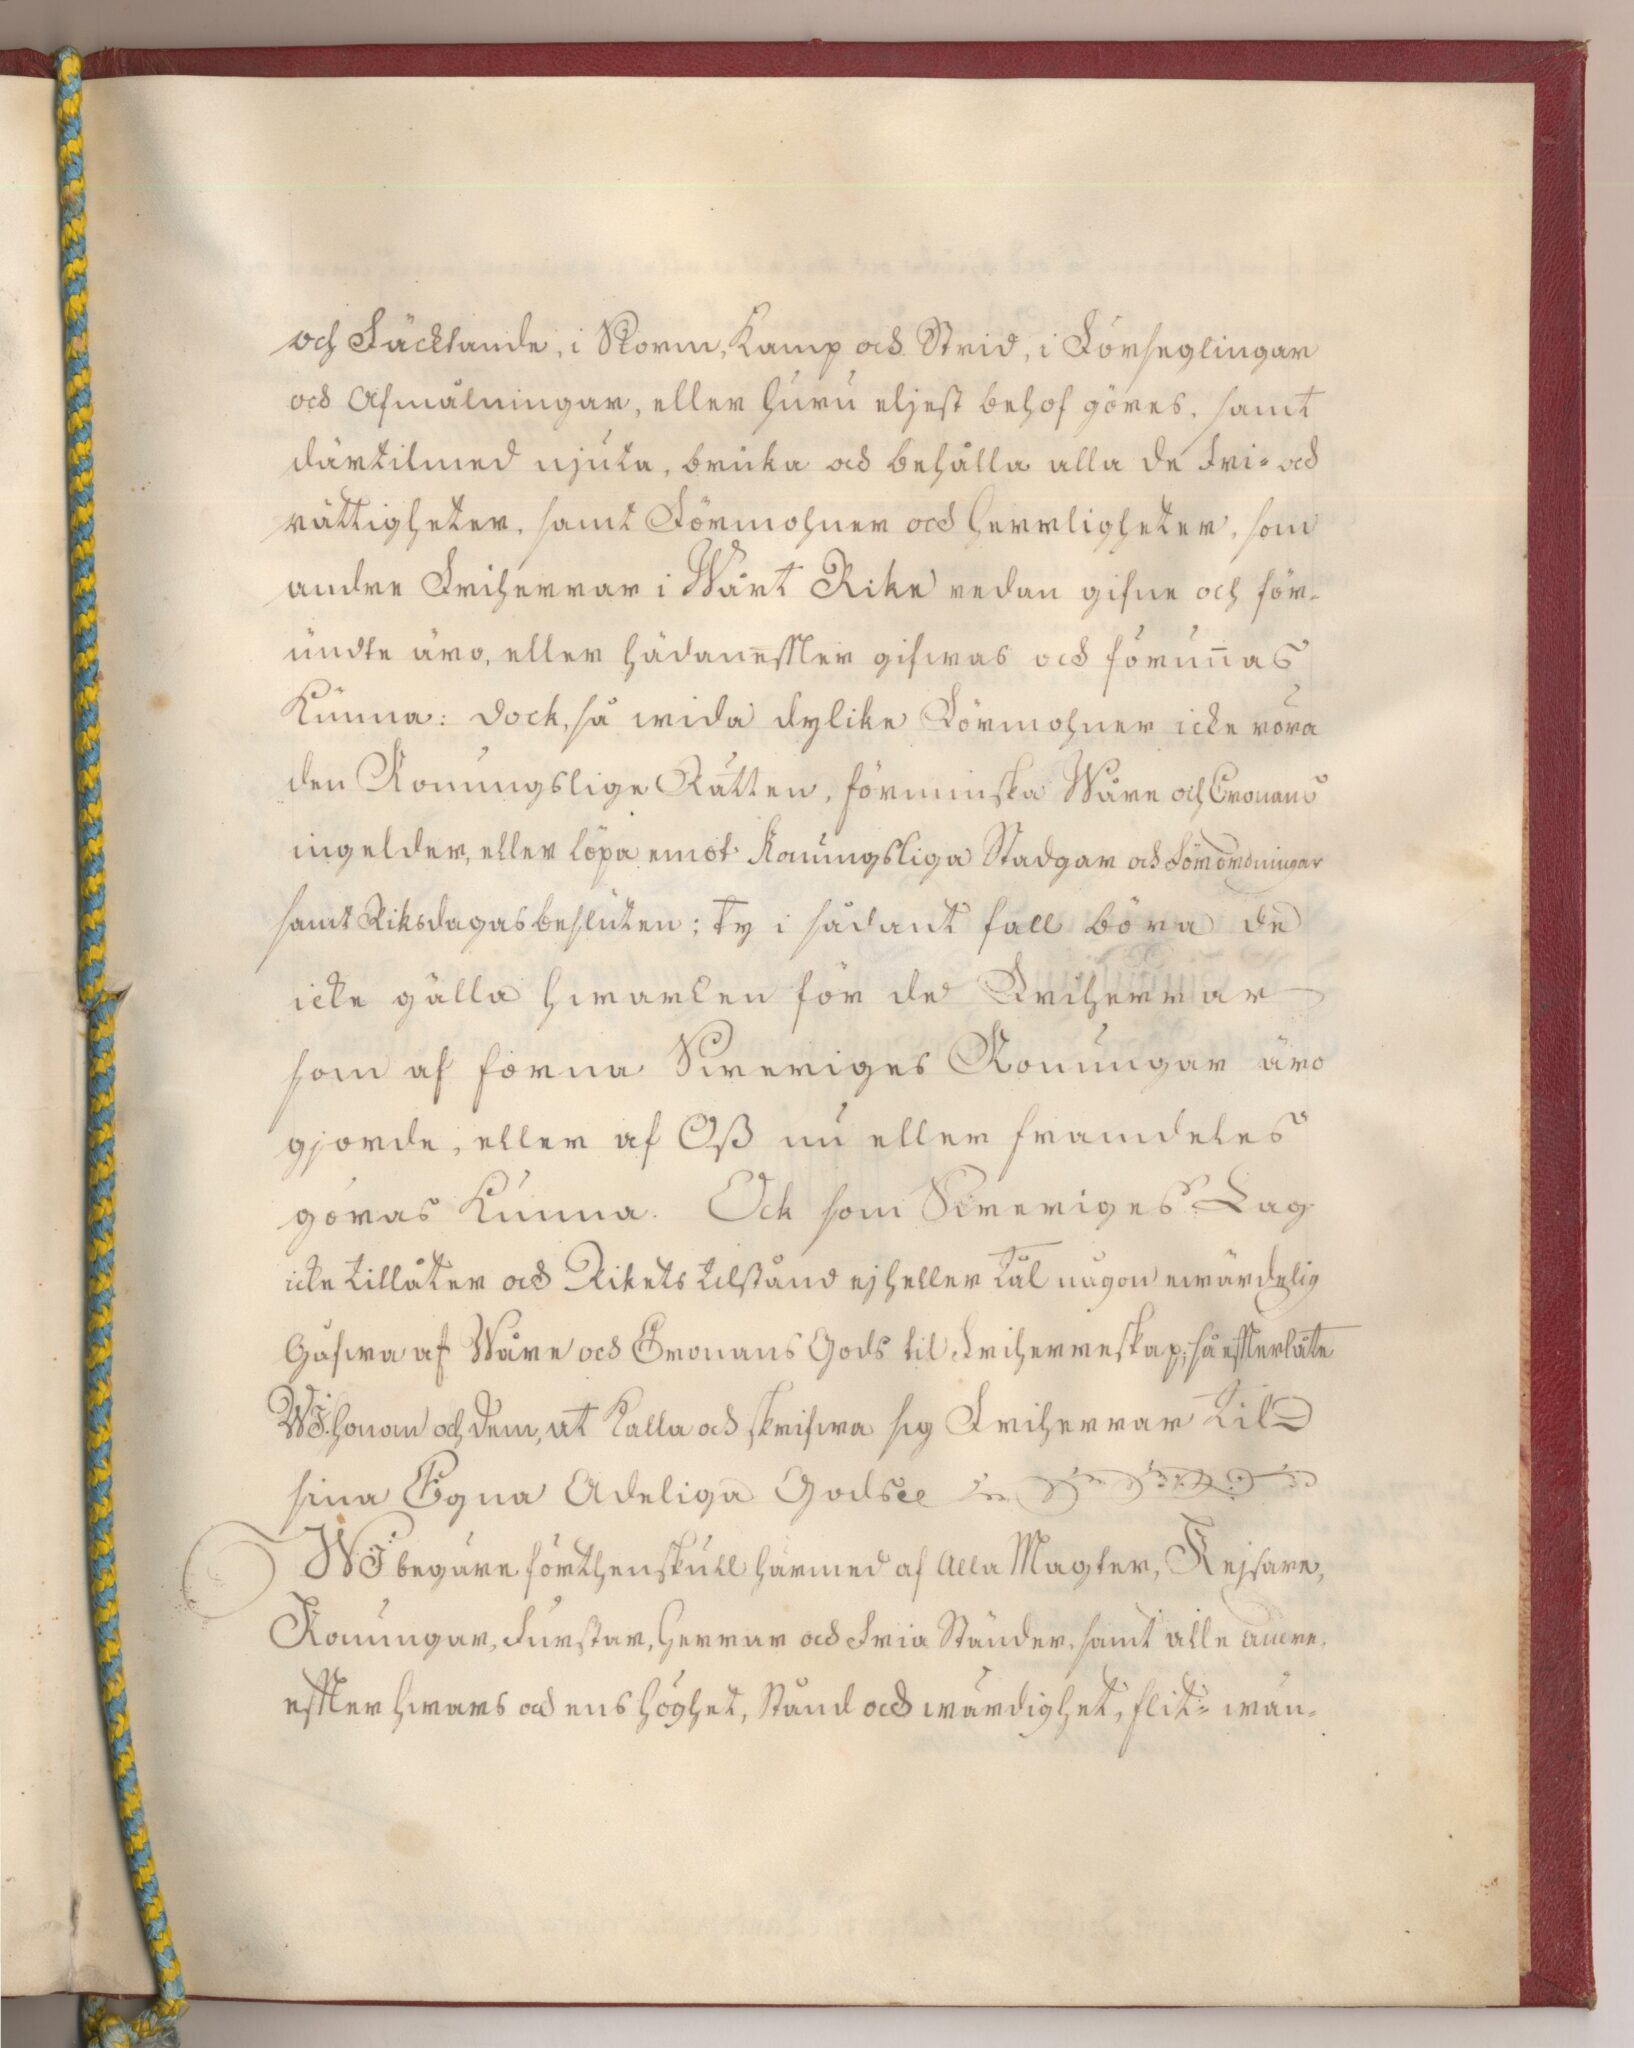 och Fäcktande, i Storm, Kamp och Strid, i Förseglingar
och Afmålningar, eller huru eljest behof göres, samt
därtilmed njuta, bruka och behålla alla de Fri- och
rättigheter, samt Förmohner och Herrligheter, som
andre Friherrar i Wårt Rike redan gifne och för-
undte äro, eller hädanefter gifwas och förunnas
kunna: dock, så wida dylike Förmohner icke röra
den Konungslige Rätten, förminska Wåre och Cronans
ingelder, eller löpa emot Konungsliga Stadgar och Förordningar
samt Riksdagasbesluten; ty i sådant fall böra de
icke gälla hwarken för de Friherrar
som af forna Sweriges Konungar äro
gjorde, eller af Oß nu eller framdeles
göras kunna. Ock som Sweriges Lag
icke tillåter och Rikets tilstånd ej heller tål någon ewärdelig
Gåfwa af Wåre och Cronans Gods til Friherreskap; så efterlåte
WJ honom och dem, at kalla och skrifwa sig Friherrar til
sina Egna Adeliga Gods
WJ begäre förthenskull härmed af alla Magter, Kejsare,
Konungar, Furstar, Herrar och Fria Ständer, samt alle andre,
efter hwars och ens höghet, Stånd och wärdighet, flit- wän-